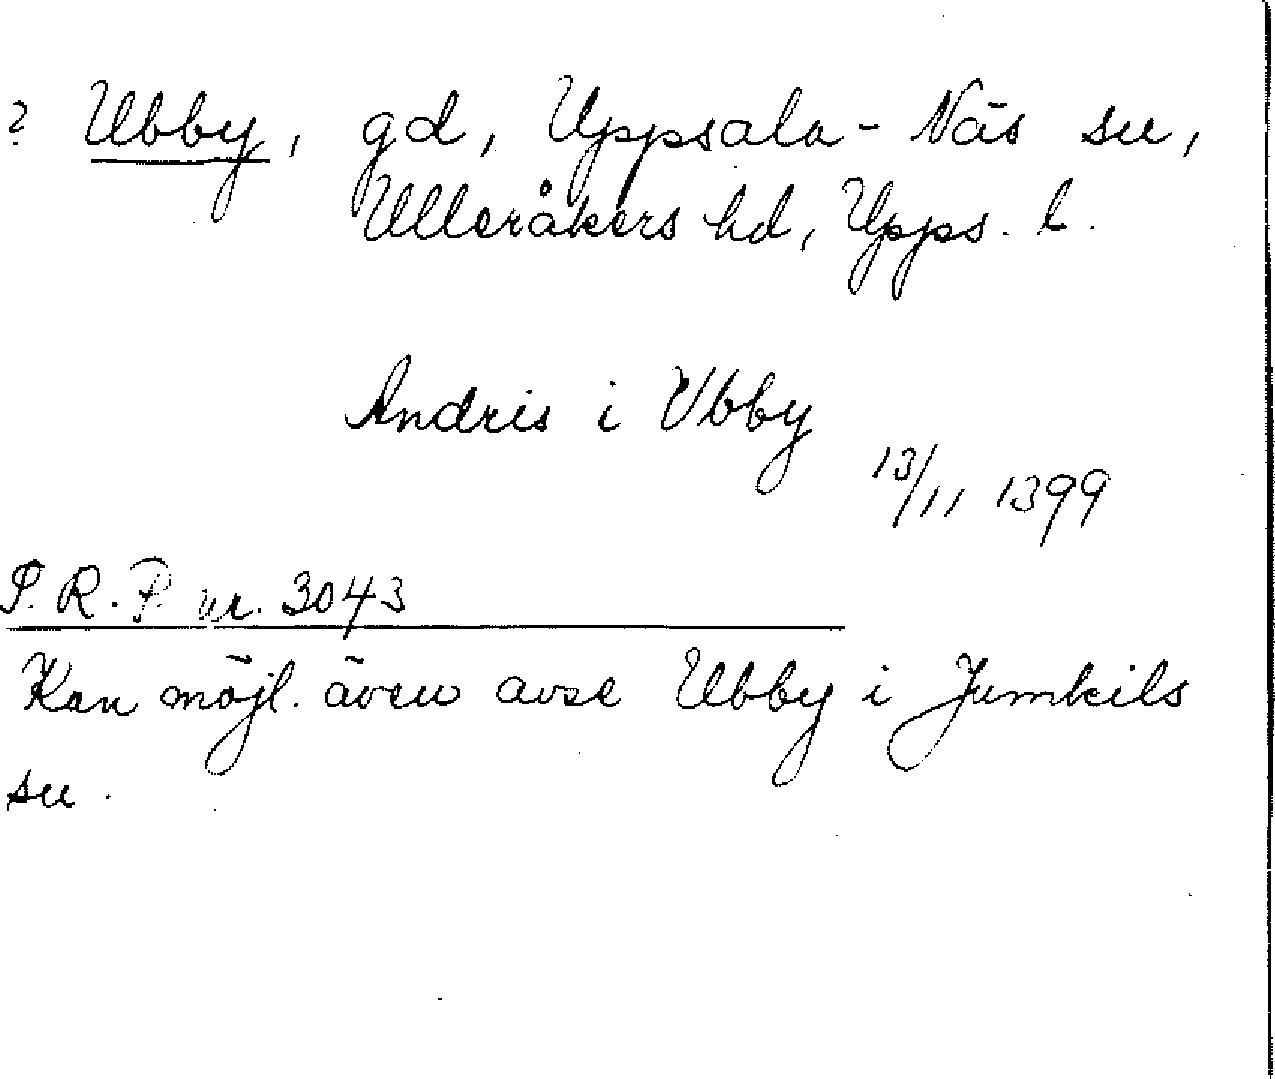 ? Ubby, gd, Uppsala-Näs sn,
Ulleråkers hd, Upps. l.
Andris i Vbby
13/11 1399
S.R.P. nr. 3043
Kan möjl. även avse Ubby i Jumkils
sn.